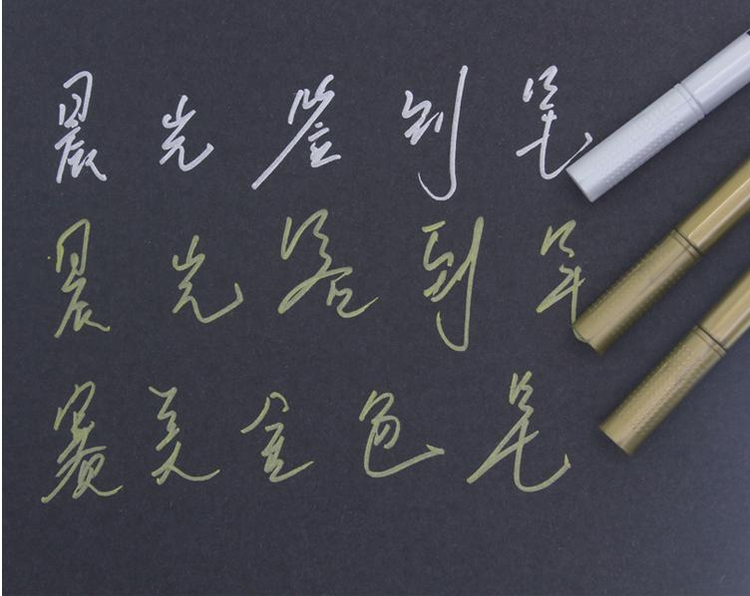 晨光签到笔
晨光签到笔
赛美金色笔